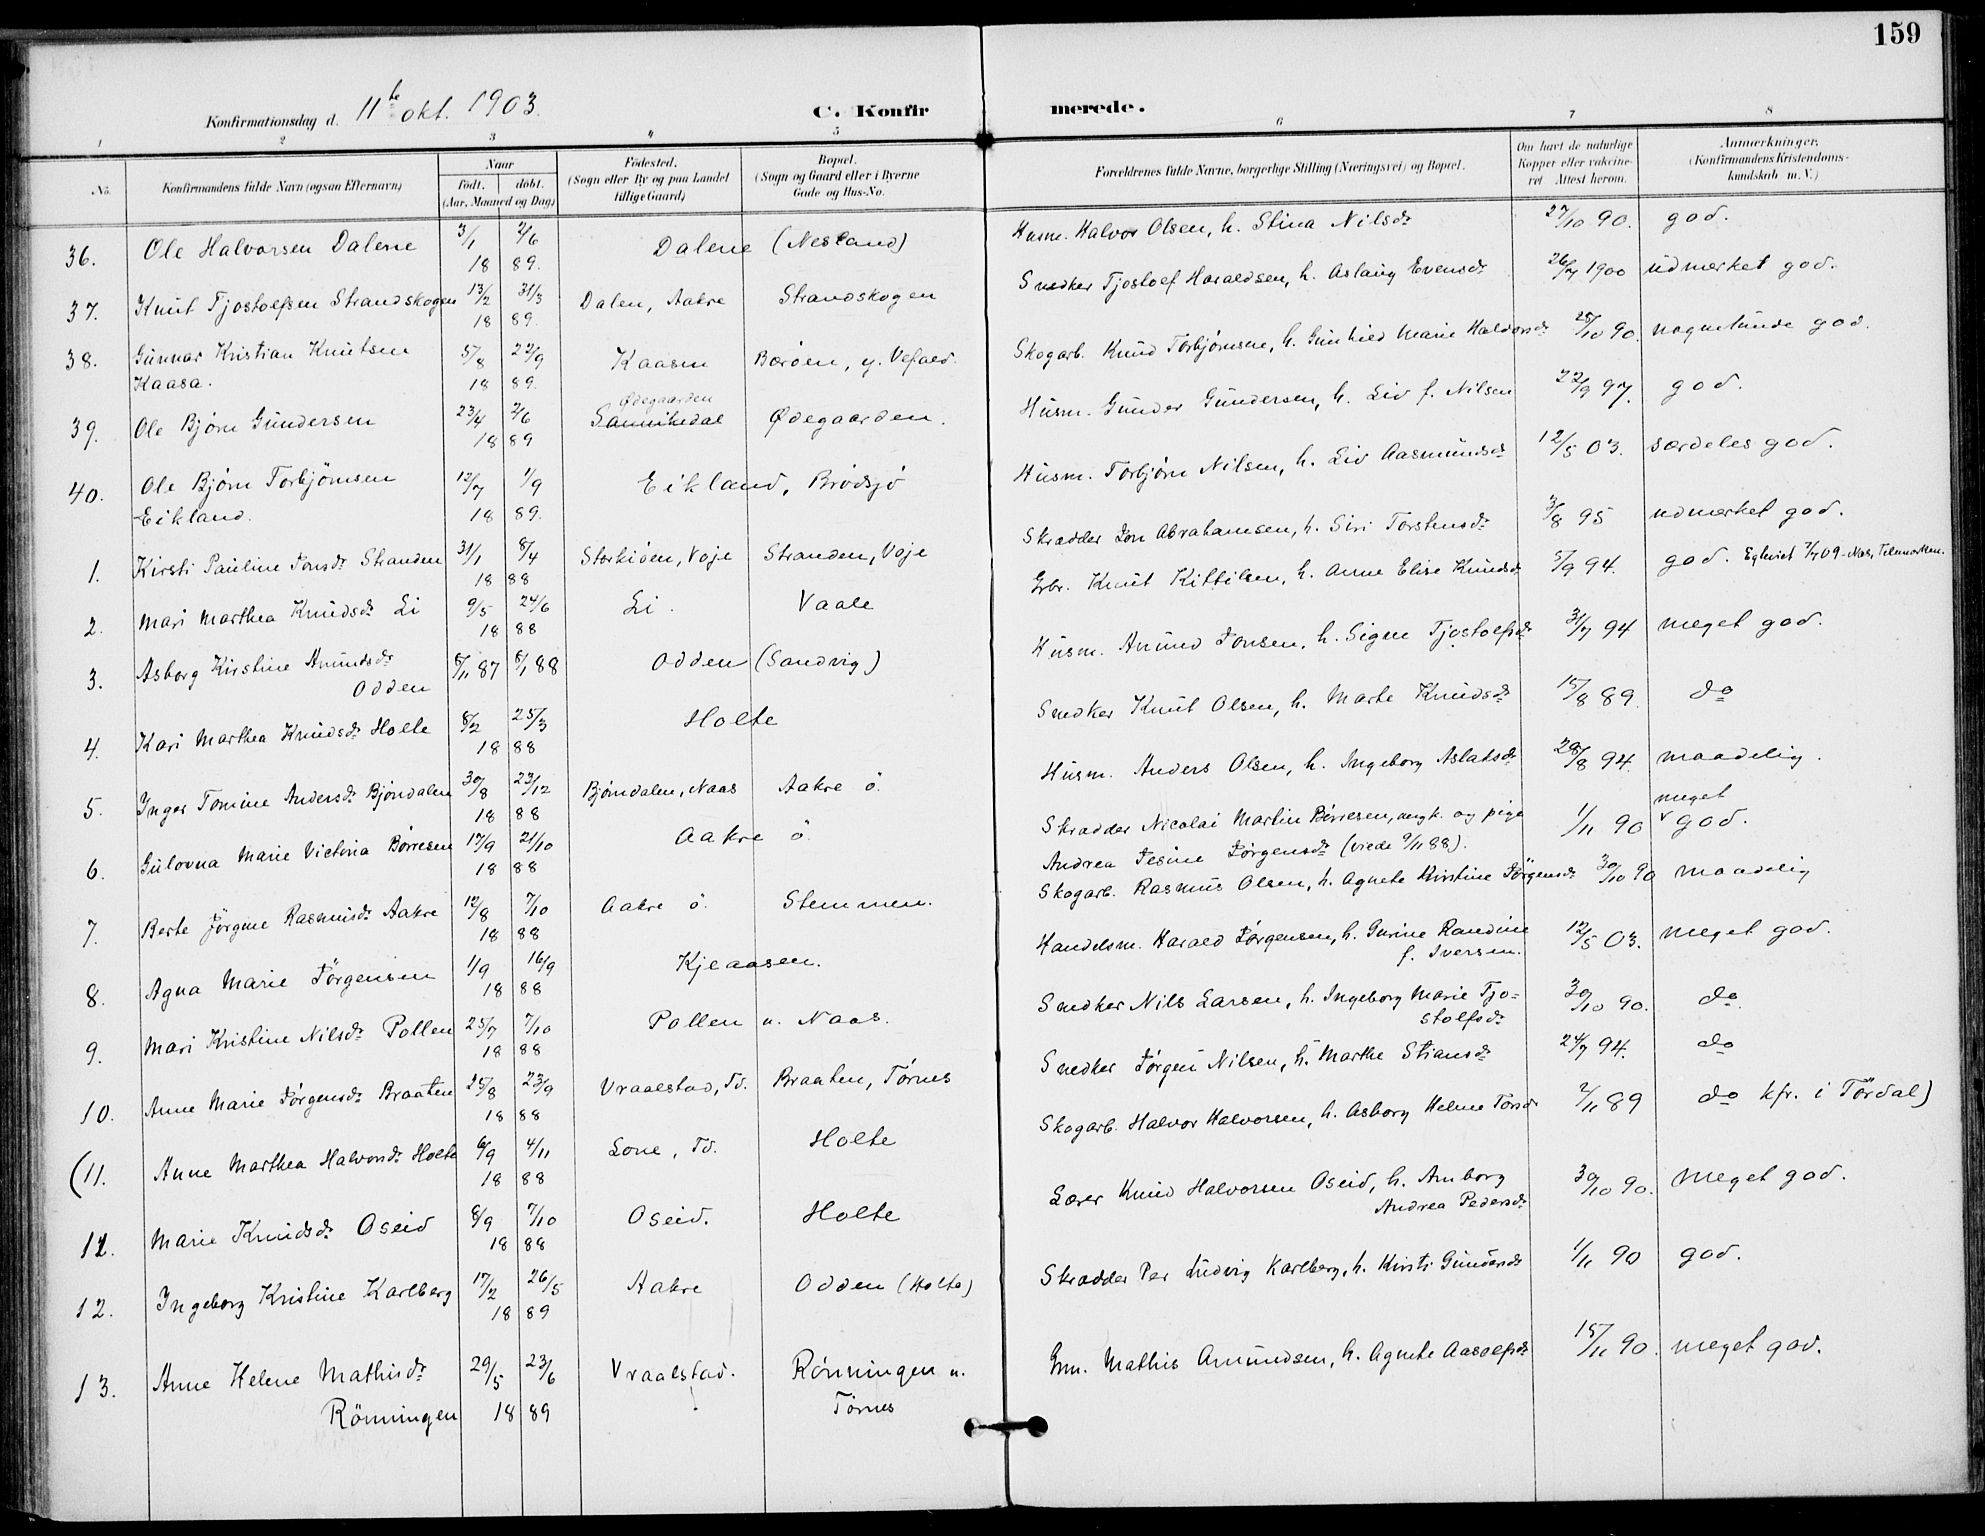 159
Konfirmationsdag d. 11te okt. 1903.
C. Konfirmerede.
1 2 3 4 5 6 7 8
No.
Konfirmandens fulde Navn (ogsaa Efternavn)
Naar
født. døbt.
(Aar, Maaned og Dag)
Fødested.
(Sogn eller By og paa Landet
tillige Gaard)
Bopæl.
(Sogn og Gaard eller i Byerne
Gade og Hus-No.
Forældrenes fulde Navne, borgerlige Stilling (Næringsvei) og Bopæl.
Om havt de naturlige
Kopper eller vakcine-
ret Attest herom.
Anmærkninger.
(Konfirmandens Kristendoms-
kundskab m. V.)
36. Ole Halvorsen Dalene 3/1 2/6 Dalene (Nesland) Husm. Halvor Olsen, h. Stina Nilsdr 27/10 90. god.
18 89.
37. Knut Tjostolfsen Strandskogen 13/2 31/3 Dalen, Aakre Strandskogen Snedker Tjostolf Haraldsen, h. Aslaug Evensdr 26/7 1900 udmerket god.
18 89.
38. Gunnar Kristian Knutsen 5/8 22/9 Kaasen Barøen, y. Vefald. Skogarb. Knud Torbjørnsen, h. Gunhild Marie Halvorsdr 25/10 90. nogenlunde god.
Kaasa. 18 89.
Ødegaarden
39. Ole Bjørn Gundersen 23/4 2/6 Sannikedal Ødegaarden. Husm. Gunder Gundersen, h. Liv f. Nilsen 22/9 97. god.
18 89
40. Ole Bjørn Torbjörnsen 12/7 1/9 Eikland, Brødsjø Husm. Torbjørn Nilsen, h. Liv Aasmundsdr 12/5 03. særdeles god.
Eikland. 18 89.
1. Kirsti Pauline Jonsdr Stranden 31/1 8/4 Storkiøen, Voje Stranden, Voje Skrædder Jon Abrahamsen, h. Siri Torstensdr 3/8 95 udmerket god.
18 88
2. Mari Marthea Knudsdr Li 9/5 24/6 Li. Vaale Gbr. Knut Kittilsen, h. Anne Elise Knudsdr 5/9 94. god. 7/7 09 - Nes, Telemarken.
18 88
3. Asborg Kirstine Anundsdr 8/11 87 8/1 88 Odden (Sandvig) Husm. Anund Jonsen, h. Signe Tjostolfsdr 31/7 94 meget god.
Odden
4. Kari Marthea Knudsdr Holte 8/2 25/3 Holte Snedker Knut Olsen, h. Marte Knudsdr 15/8 89. do
18 88
5. Inger Tomine Andersdr Bjöndalen 30/8 23/12 Bjørndalen, Naas Aakre ö. Husm. Anders Olsen, h. Ingeborg Aslaksdr 28/8 94. maadelig.
18 88
6. Gulovna Marie Victoria Børresen 17/9 21/10 Aakre ö. Skrædder Nicolai Martin Børresen, ungk. og pige 1/11 90 meget god.
18 88 Andrea Jesine Jørgensdr (viede 9/11 88).
7. Berte Jörgine Rasmusdr Aakre 12/8 7/10 Aakre ö. Stemmen. Skogarb. Rasmus Olsen, h. Agnete Kirstine Jørgensdr 30/10 90 maadelig
18 88
8. Agna Marie Jörgensen 1/9 16/9 Kjeaasen. Handelsm. Harald Jørgensen, h. Gurine Randine 12/5 03. meget god.
18 88 f. Iversen.
9. Mari Kristine Nilsdr Pollen 25/7 7/10 Pollen u. Naas. Snedker Nils Larsen, h. Ingeborg Marie Tjo-
18 88 stolfsdr 30/10 90. do.
10. Anne Marie Jørgensdr Braaten 25/8 23/9 Vraalstad, Td. Braaten, Tørnes Snedker Jørgen Nilsen, h. Marthe Stiansdr 24/7 94. do
18 88
(11. Anne Marthea Halvorsdr Holte 6/9 4/11 Lone, Td. Holte Skogarb. Halvor Halvorsen, h. Asborg Helene Torsdr 2/11 89 do kfr. i Tördal)
18 88
11. Marie Knudsdr Oseid 8/9 7/10 Oseid. Holte Lærer Knud Halvorsen Oseid, h. Amborg 30/10 90. meget god.
18 88 Andrea Pedersdr
12. Ingeborg Kristine Karlberg 17/2 26/5 Aakre Odden (Holte) Skrædder Per Ludvig Karlberg, h. Kirsti Gundersdr 1/11 90 god.
18 89
13. Anne Helene Mathisdr 29/5 23/6 Vraalstad. Rønningen u. Gm. Mathis Amundsen, h. Agnete Aasolfsdr 15/11 90. meget god.
Rönningen 18 89 Tørnes